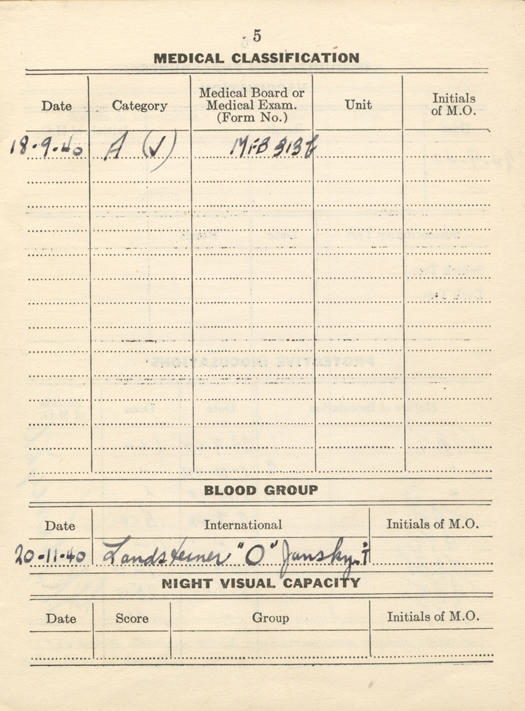 5
MEDICAL CLASSIFICATION
Date Category Medical Board or Medical Exam. (Form No.) Unit Initials of M.O.
18-9-40 A (V) MFB 313
BLOOD GROUP
Date International Initials of M.O.
20-11-40 Landsteiner "O" Jansky
NIGHT VISUAL CAPACITY
Date Score Group Initials of M.O.